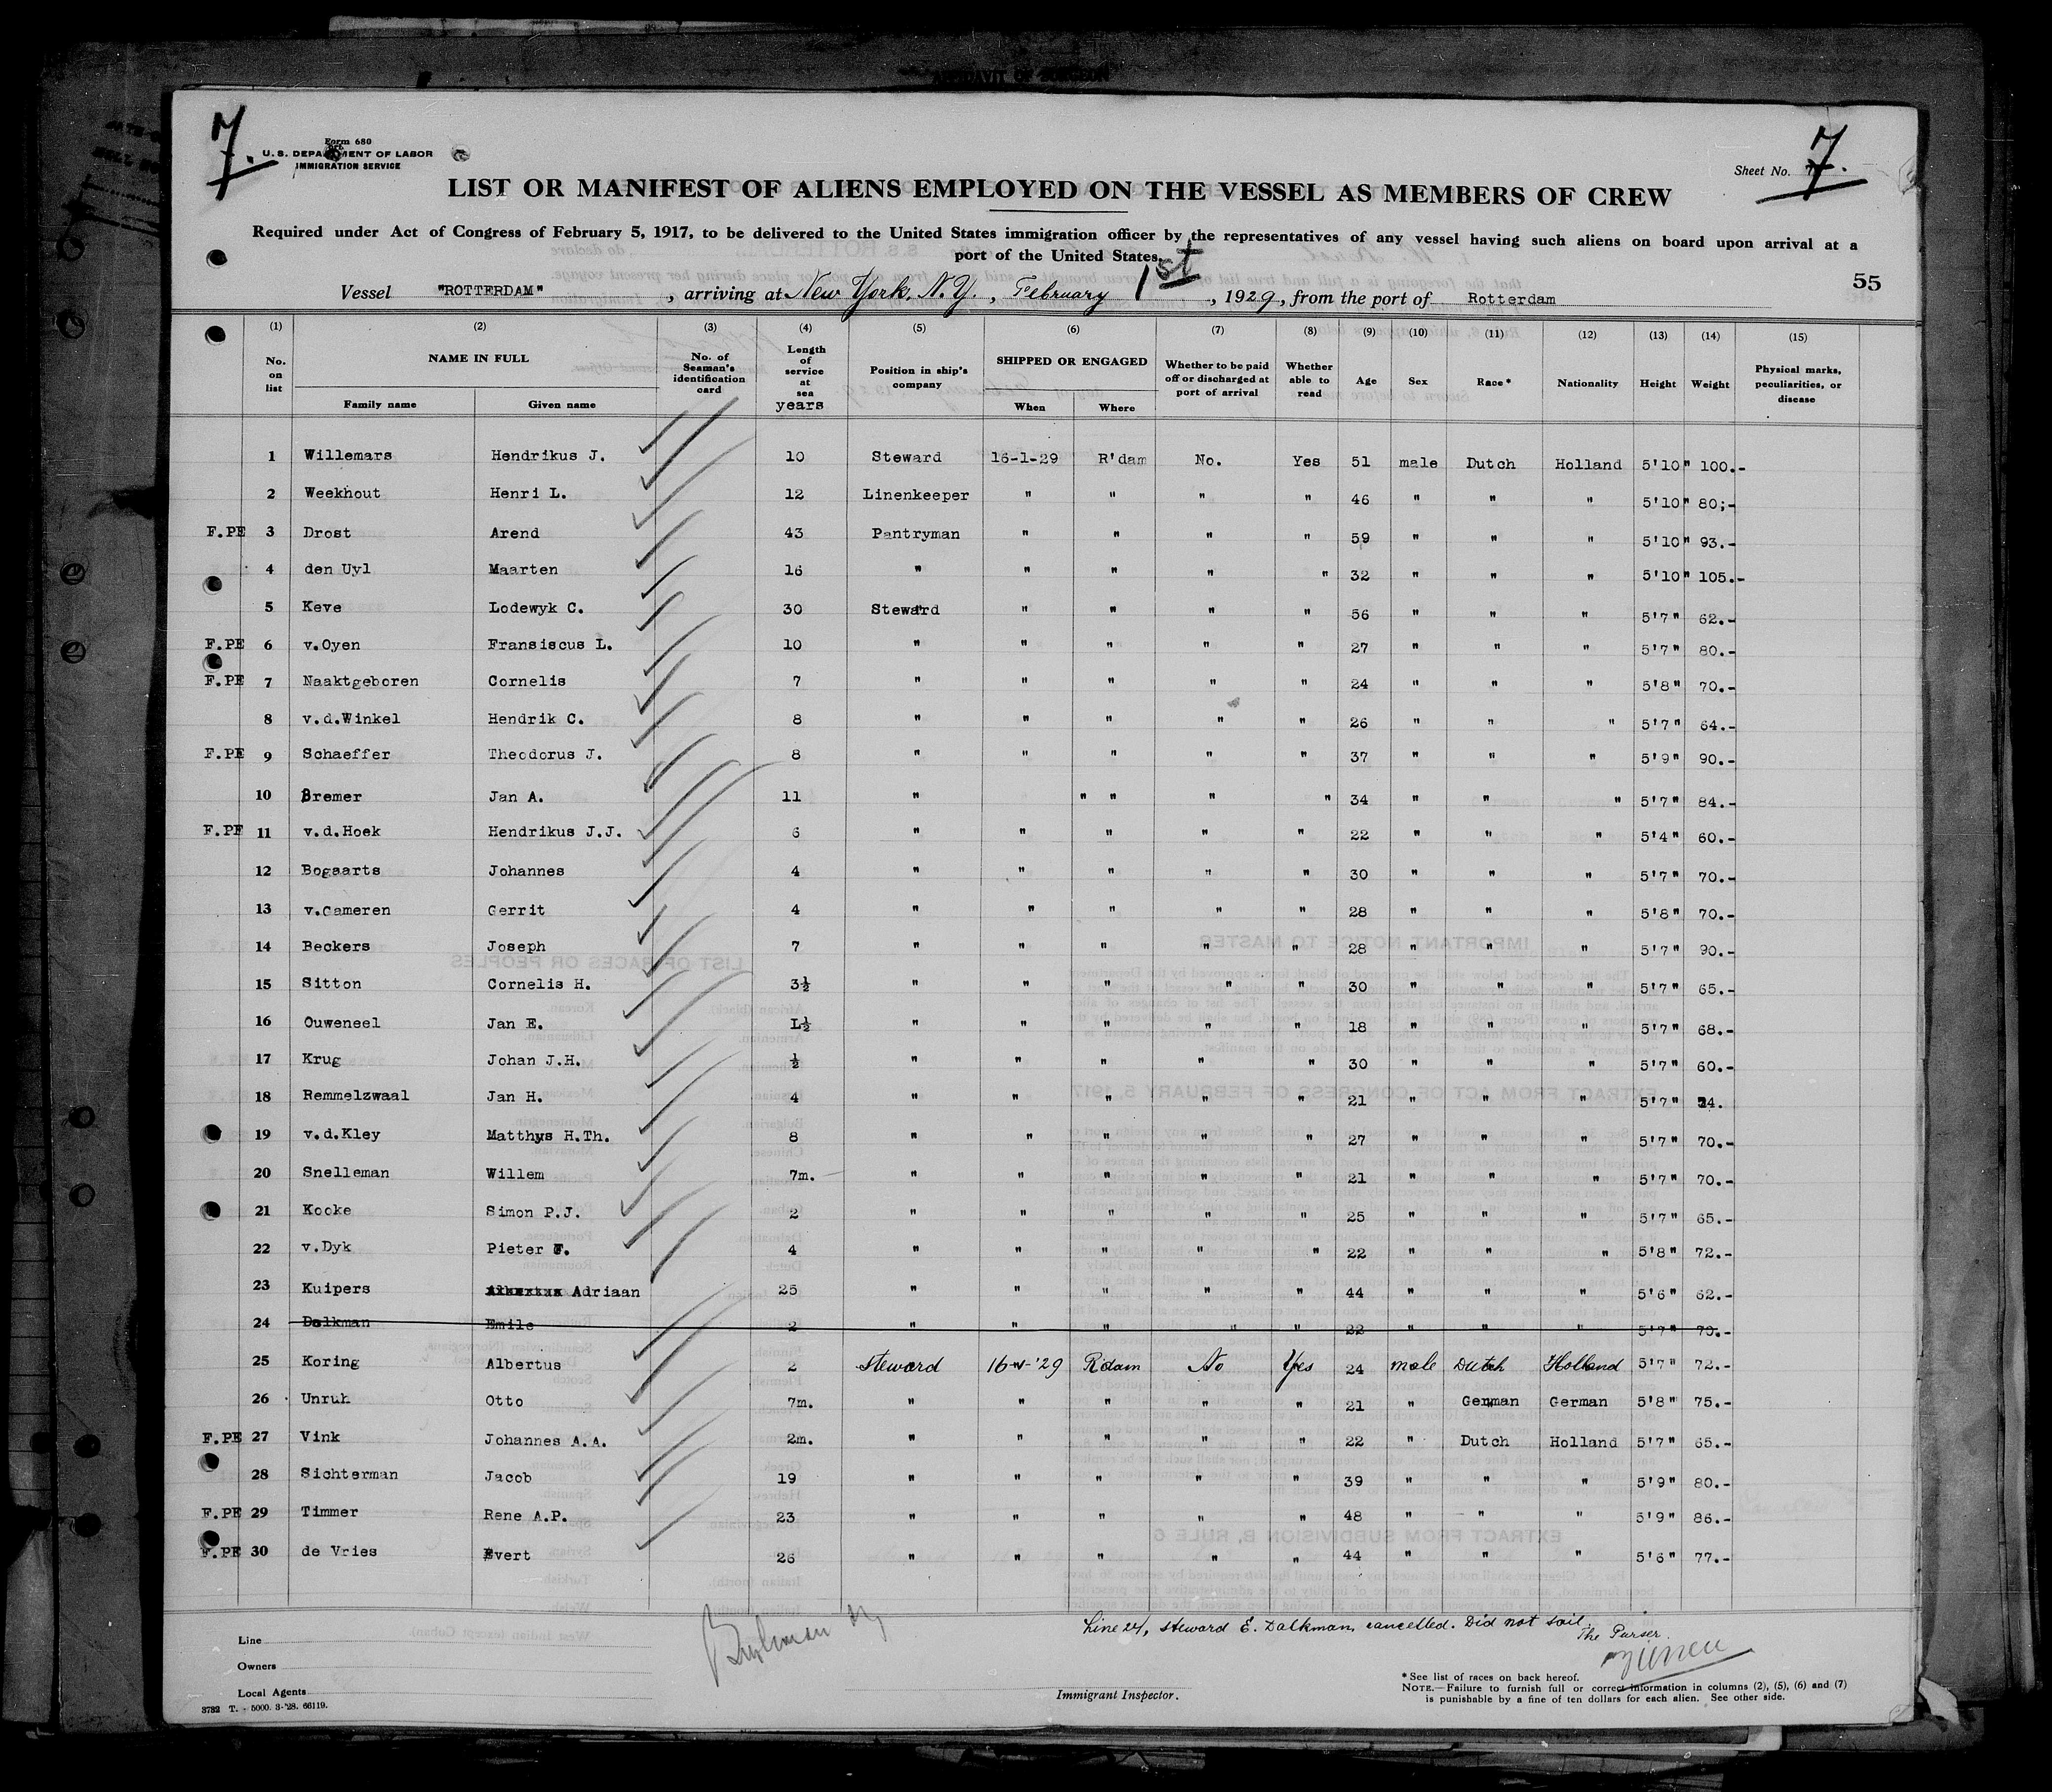 AFFIDAVIT OF SURGEON
7.
Form 680
U. S. DEPARTMENT OF LABOR
IMMIGRATION SERVICE
Sheet No. 7.
LIST OR MANIFEST OF ALIENS EMPLOYED ON THE VESSEL AS MEMBERS OF CREW
Required under Act of Congress of February 5, 1917, to be delivered to the United States immigration officer by the representatives of any vessel having such aliens on board upon arrival at a
port of the United States.
55
Vessel "ROTTERDAM", arriving at New York. N.Y., February 1st, 1929, from the port of Rotterdam
(1) (2) (3) (4) (5) (6) (7) (8) (9) (10) (11) (12) (13) (14) (15)
No. on list NAME IN FULL Family name Given name No. of Seaman's identification card Length of service at sea years Position in ship's company SHIPPED OR ENGAGED When Where Whether to be paid off or discharged at port of arrival Whether able to read Age Sex Race* Nationality Height Weight Physical marks, peculiarities, or disease
1 Willemars Hendrikus J. 10 Steward 16-1-29 R'dam No. Yes 51 male Dutch Holland 5'10" 100.-
2 Weekhout Henri L. 12 Linenkeeper " " " " 46 " " " 5'10" 80;-
F.PE 3 Drost Arend 43 Pantryman " " " " 59 " " " 5'10" 93.-
4 den Uyl Maarten 16 " " " " " 32 " " " 5'10" 105.-
5 Keve Lodewyk C. 30 Steward " " " " 56 " " " 5'7" 62.-
F.PE 6 v.Oyen Fransiscus L. 10 " " " " " 27 " " " 5'7" 80.-
F.PE 7 Naaktgeboren Cornelis 7 " " " " " 24 " " " 5'8" 70.-
8 v.d.Winkel Hendrik C. 8 " " " " " 26 " " " 5'7" 64.-
F.PE 9 Schaeffer Theodorus J. 8 " " " " " 37 " " " 5'9" 90.-
10 Bremer Jan A. 11 " " " " " 34 " " " 5'7" 84.-
F.PE 11 v.d.Hoek Hendrikus J.J. 6 " " " " " 22 " " " 5'4" 60.-
12 Bogaarts Johannes 4 " " " " " 30 " " " 5'7" 70.-
13 v.Cameren Gerrit 4 " " " " " 28 " " " 5'8" 70.-
14 Beckers Joseph 7 " " " " " 28 " " " 5'7" 90.-
15 Sitton Cornelis H. 3½ " " " " " 30 " " " 5'7" 65.-
16 Ouweneel Jan E. L½ " " " " " 18 " " " 5'7" 68.-
17 Krug Johan J.H. ½ " " " " " 30 " " " 5'7" 60.-
18 Remmelzwaal Jan H. 4 " " " " " 21 " " " 5'7"
19 v.d.Kley Matthys H.Th. 8 " " " " " 27 " " " 5'7" 70.-
20 Snelleman Willem 7m. " " " " " 21 " " " 5'7" 70.-
21 Kooke Simon P.J. 2 " " " " " 25 " " " 5'7" 65.-
22 v.Dyk Pieter F. 4 " " " " " 22 " " " 5'8" 72.-
23 Kuipers Adriaan 25 " " " " " 44 " " " 5'6" 62.-
24 Dalkman Emile 2 " " " " " 22 " " " 5'7" 70.-
25 Koring Albertus 2 steward 16-1-'29 R'dam No Yes 24 male Dutch Holland 5'7" 72.-
26 Unruh Otto 7m. " " " " " 21 " German German 5'8" 75.-
F.PE 27 Vink Johannes A.A. 2m. " " " " " 22 " Dutch Holland 5'7" 65.-
28 Sichterman Jacob 19 " " " " " 39 " " " 5'9" 80.-
F.PE 29 Timmer Rene A.P. 23 " " " " " 48 " " " 5'9" 86.-
F.PE 30 de Vries Evert 26 " " " " " 44 " " " 5'6" 77.-
Line 24, steward E. Dalkman, cancelled. Did not sail.
The Purser.
Line
Owners
Local Agents
Immigrant Inspector.
*See list of races on back hereof.
NOTE.—Failure to furnish full or correct information in columns (2), (5), (6) and (7)
is punishable by a fine of ten dollars for each alien. See other side.
3782 T. - 5000. 3-'28. 66119.